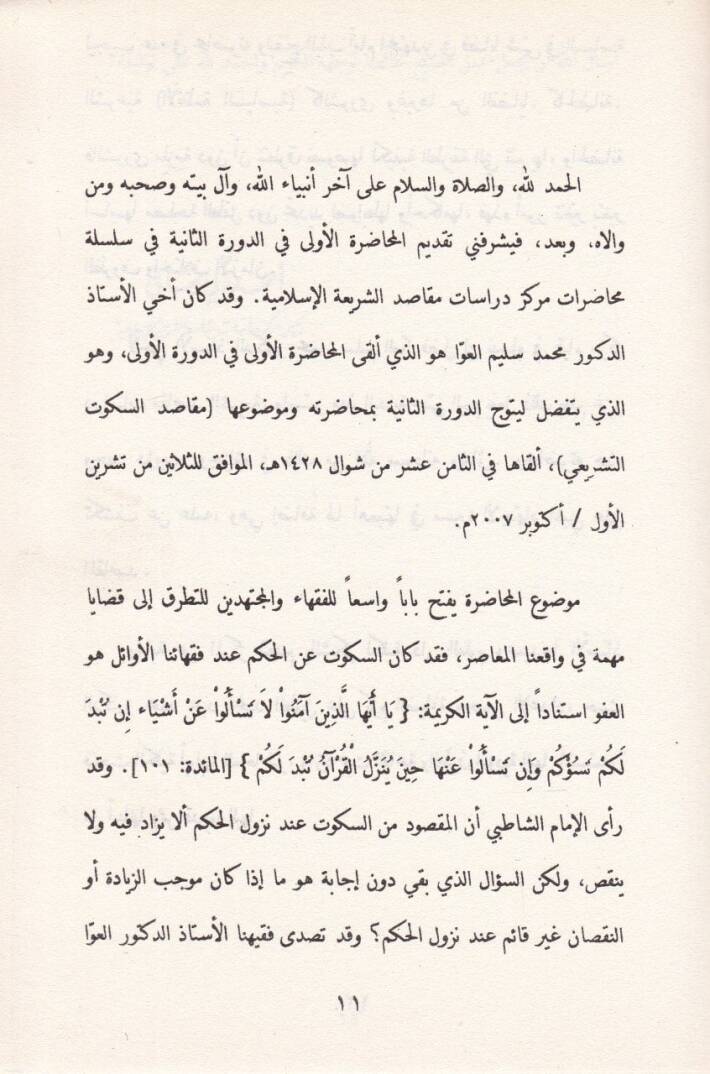 الحمد لله، والصلاة والسلام على آخر أنبياء الله، وآل بيته وصحبه ومن
والاه، وبعد، فيشرفني تقديم المحاضرة الأولى في الدورة الثانية في سلسلة
محاضرات مركز دراسات مقاصد الشريعة الإسلامية. وقد كان أخي الأستاذ
الدكتور محمد سليم العوّا هو الذي ألقى المحاضرة الأولى في الدورة الأولى، وهو
الذي يتفضل ليتوج الدورة الثانية بمحاضرته وموضوعها (مقاصد السكوت
التشريعي)، ألقاها في الثامن عشر من شوال ١٤٢٨هـ، الموافق للثلاثين من تشرين
الأول / أكتوبر ٢٠٠٧م.
موضوع المحاضرة يفتح باباً واسعاً للفقهاء والمجتهدين للتطرق إلى قضايا
مهمة في واقعنا المعاصر، فقد كان السكوت عن الحكم عند فقهائنا الأوائل هو
العفو استناداً إلى الآية الكريمة: {يَا أَيُّهَا الَّذِينَ آمَنُواْ لاَ تَسْأَلُواْ عَنْ أَشْيَاء إِن تُبْدَ
لَكُمْ تَسُؤْكُمْ وَإِن تَسْأَلُواْ عَنْهَا حِينَ يُنَزَّلُ الْقُرْآنُ تُبْدَ لَكُمْ} [المائدة: ١٠١]. وقد
رأى الإمام الشاطبي أن المقصود من السكوت عند نزول الحكم ألا يزاد فيه ولا
ينقص، ولكن السؤال الذي بقي دون إجابة هو ما إذا كان موجب الزيادة أو
النقصان غير قائم عند نزول الحكم؟ وقد تصدى فقيهنا الأستاذ الدكتور العوّا
١١